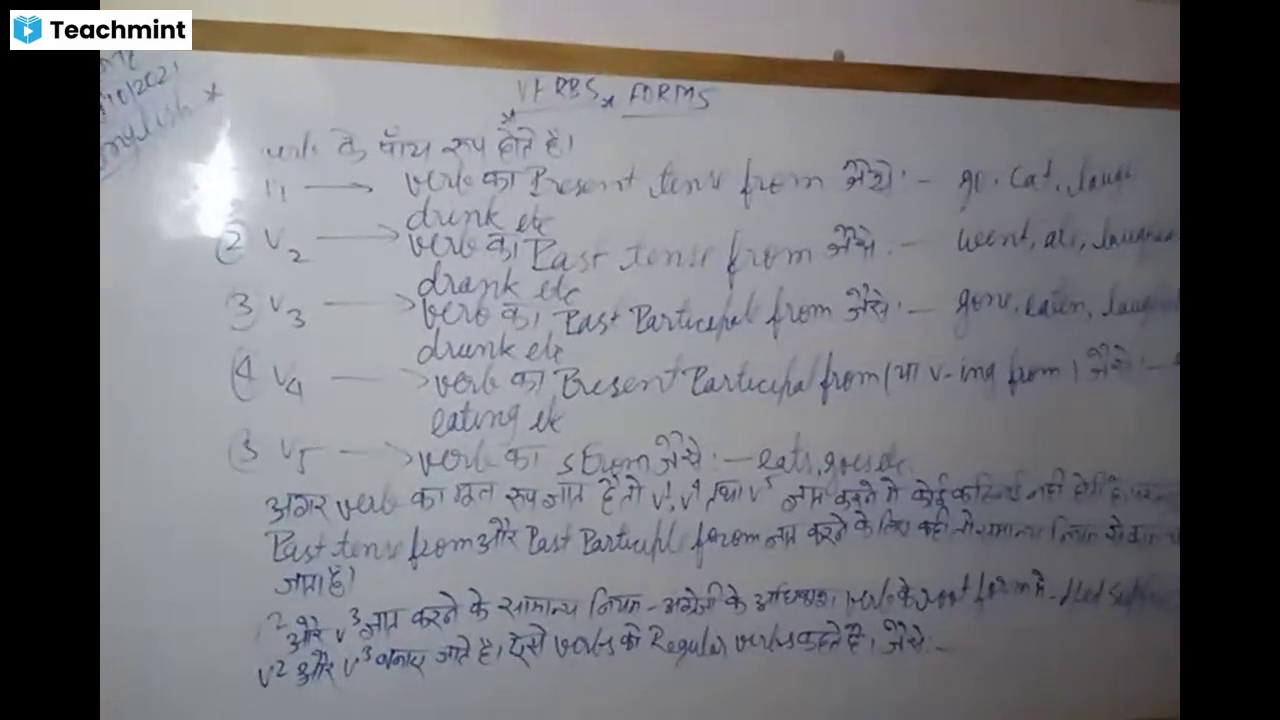 Teachmint
10/2021
English *
VERBS * FORMS
verb के पाँच रूप होते है।
→ verb का Present tense from जैसे :- go, eat, laugh
drunk etc
② V2 → verb का Past tense from जैसे :- went, ate, laughed
drank etc
③ V3 → verb का Past Participal from जैसे :- gone, eaten, laughed
drunk etc
④ V4 → verb का Present Participal from (या v-ing from) जैसे :-
eating etc
V5 → verb का s from जैसे :- eats, goes etc
अगर verb का मूल रूप ज्ञात है तो V1, V4 तथा V5 ज्ञात करने मे कोई कठिनाई नही होती है,
Past tense from और Past Participl from ज्ञात करने के लिए कही तो सामान्य नियम से काम
जाता है।
2 और V3 ज्ञात करने के सामान्य नियम - अंग्रेजी के अधिकांश verb के root form मे
V2 और V3 बनाए जाते है, ऐसे verbs को Regular verbs कहते है। जैसे :-